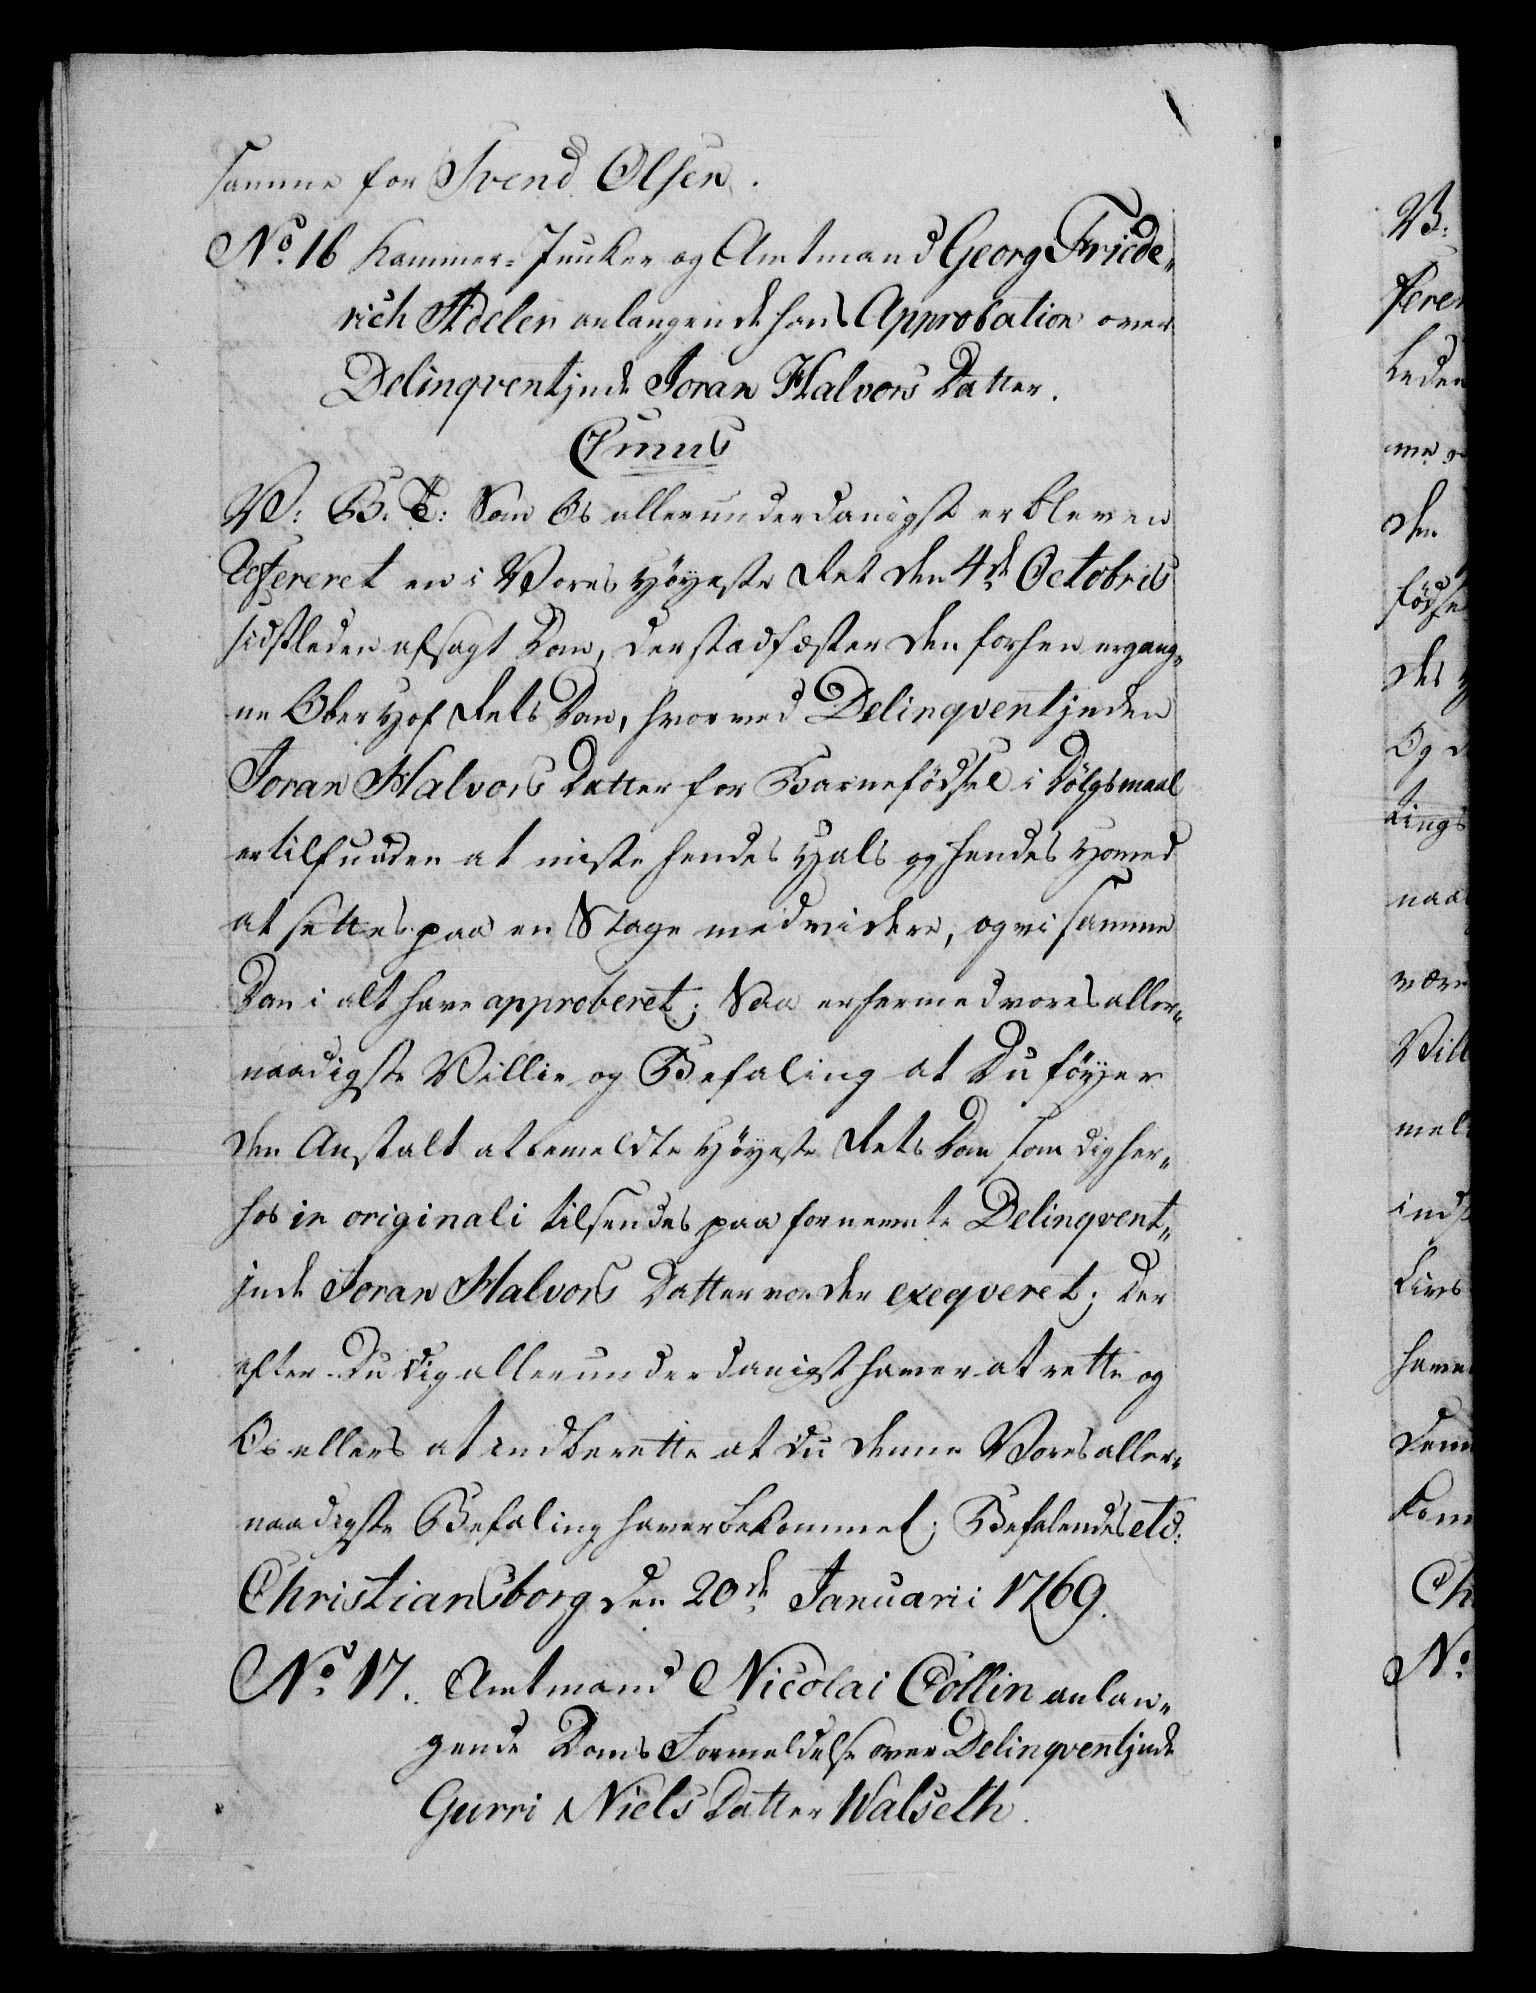 samme for Svend Olsen.
No. 16 Kammer-Junker og Amtmand Georg Friede„
rich Adeler anlangende hans Approbation over
Delinqventjnde Joran Halvors Datter.
C7mus
V: G. T: Som Os allerunderdanigst er bleven
refereret en i Vores Høyeste Ret den 4de Octobris
sidstleden afsagt Dom, der stadfæster den forhen ergang„
ne Ober Hof Rets Dom, hvorved Delinqventjnden
Joran Halvors Datter for Barnefödsel i Dölgsmaal
er tilfunden at miste hendes Hals og hendes Hoved
at settes paa en Stage med videre, og vi samme
Dom i alt have approberet; Saa er hermed vores aller„
naadigste Villie og Befaling at Du föyer
den Anstalt at bemeldte Høyeste Rets Dom som dig her„
hos in originali tilsendes paa fornemte Delinqvent„
jnde Joran Halvors Datter vorder exeqveret; Der
efter Du dig allerunderdanigst haver at rette og
Os ellers at indberette at Du denne Vores aller„
naadigste Befaling haver bekommet; Befalendes etc:
Christiansborg den 20de Januarii 1769.
No. 17. Amtmand Nicolai Collin anlan„
gende Doms Formeldelse over Delinqventjnde
Gurri Niels Datter Walseth.